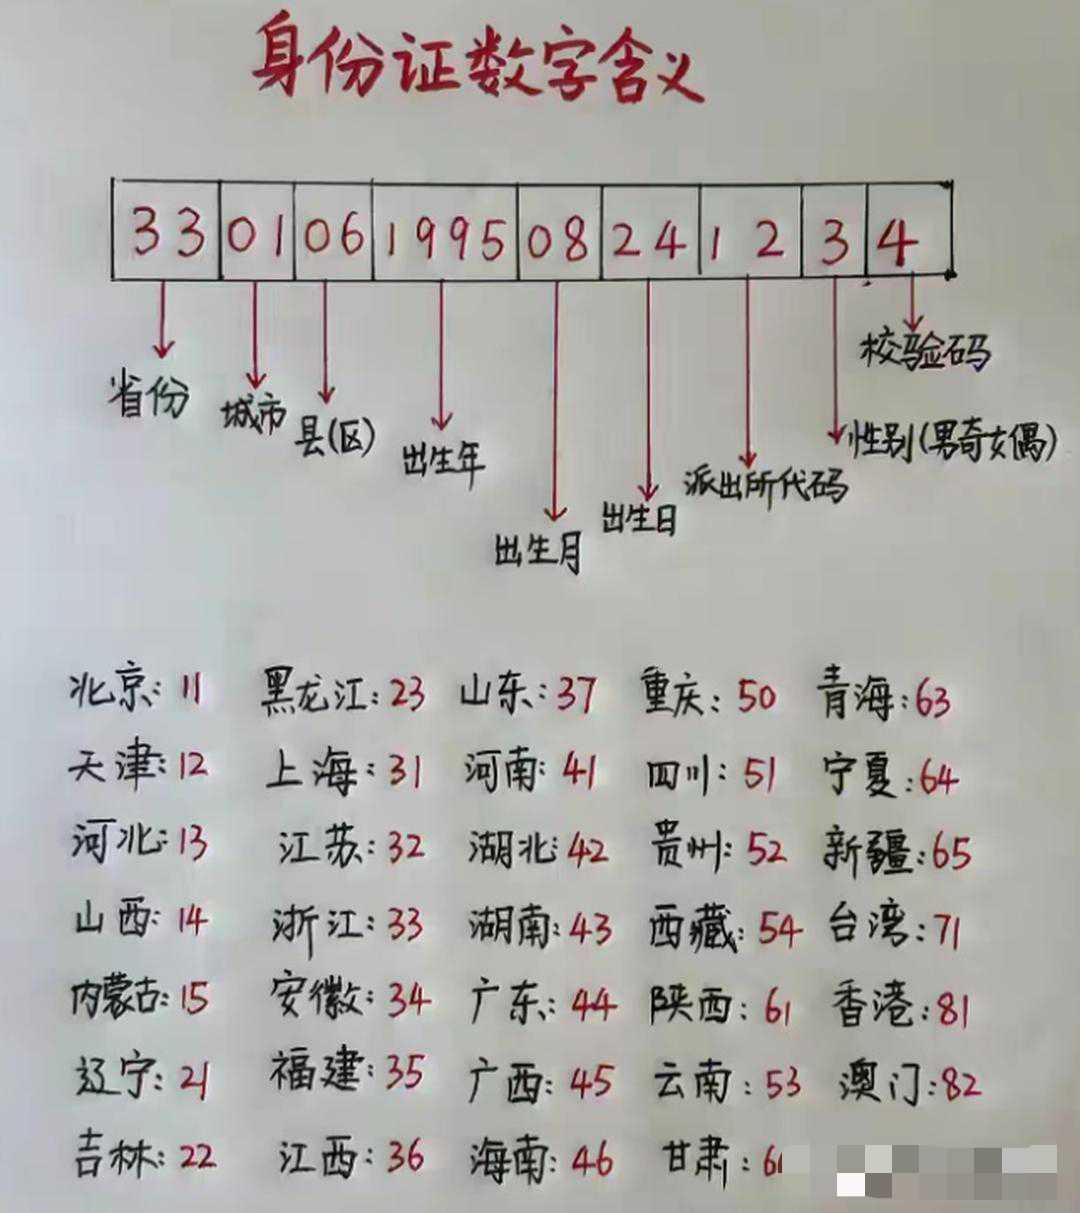 身份证数字含义
33 01 06 1995 08 24 12 3 4
校验码
省份 城市 县(区) 出生年 性别(男奇女偶)
派出所代码
出生月 出生日
北京:11 黑龙江:23 山东:37 重庆:50 青海:63
天津:12 上海:31 河南:41 四川:51 宁夏:64
河北:13 江苏:32 湖北:42 贵州:52 新疆:65
山西:14 浙江:33 湖南:43 西藏:54 台湾:71
内蒙古:15 安徽:34 广东:44 陕西:61 香港:81
辽宁:21 福建:35 广西:45 云南:53 澳门:82
吉林:22 江西:36 海南:46 甘肃:6